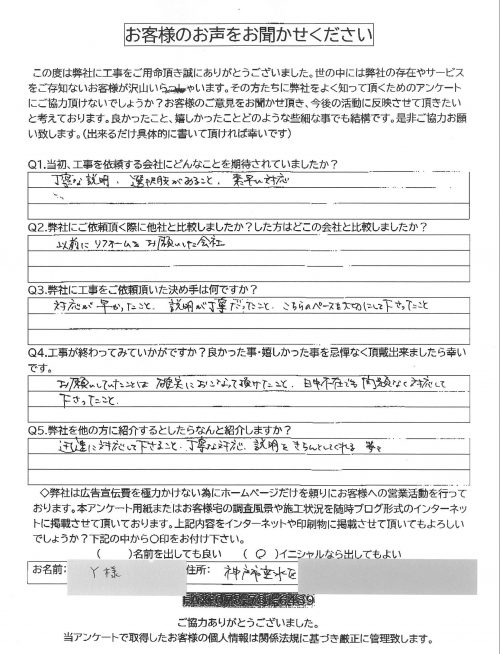 お客様のお声をお聞かせください
この度は弊社に工事をご用命頂き誠にありがとうございました。世の中には弊社の存在やサービス
をご存知ないお客様が沢山いらっしゃいます。その方たちに弊社をよく知って頂くためのアンケート
にご協力頂けないでしょうか？お客様のご意見をお聞かせ頂き、今後の活動に反映させて頂きたい
と考えております。良かったこと、嬉しかったことどのような些細な事でも結構です。是非ご協力お願
い致します。（出来るだけ具体的に書いて頂ければ幸いです）
Q1.当初、工事を依頼する会社にどんなことを期待されていましたか？
丁寧な説明、選択肢があること、素早い対応
Q2.弊社にご依頼頂く際に他社と比較しましたか？した方はどこの会社と比較しましたか？
以前にリフォームをお願いした会社
Q3.弊社に工事をご依頼頂いた決め手は何ですか？
対応が早かったこと、説明が丁寧だったこと、こちらのペースを大切にして下さったこと
Q4.工事が終わってみていかがですか？良かった事・嬉しかった事を忌憚なく頂戴出来ましたら幸い
です。
お願いしていたことは確実におこなって頂けたこと、日中不在でも問題なく対応して
下さったこと。
Q5.弊社を他の方に紹介するとしたらなんと紹介しますか？
迅速に対応して下さること、丁寧な対応、説明をきちんとしてくれる 等々
◇弊社は広告宣伝費を極力かけない為にホームページだけを頼りにお客様への営業活動を行って
おります。本アンケート用紙またはお客様宅の調査風景や施工状況を随時ブログ形式のインターネッ
トに掲載させて頂いております。上記内容をインターネットや印刷物に掲載させて頂いてもよろしい
でしょうか？下記の中から〇印をお付け下さい。
（　　）名前を出しても良い　（ 〇 ）イニシャルなら出してもよい
お名前： Y様 住所： 神戸市垂水区
ご協力ありがとうございました。
当アンケートで取得したお客様の個人情報は関係法規に基づき厳正に管理致します。